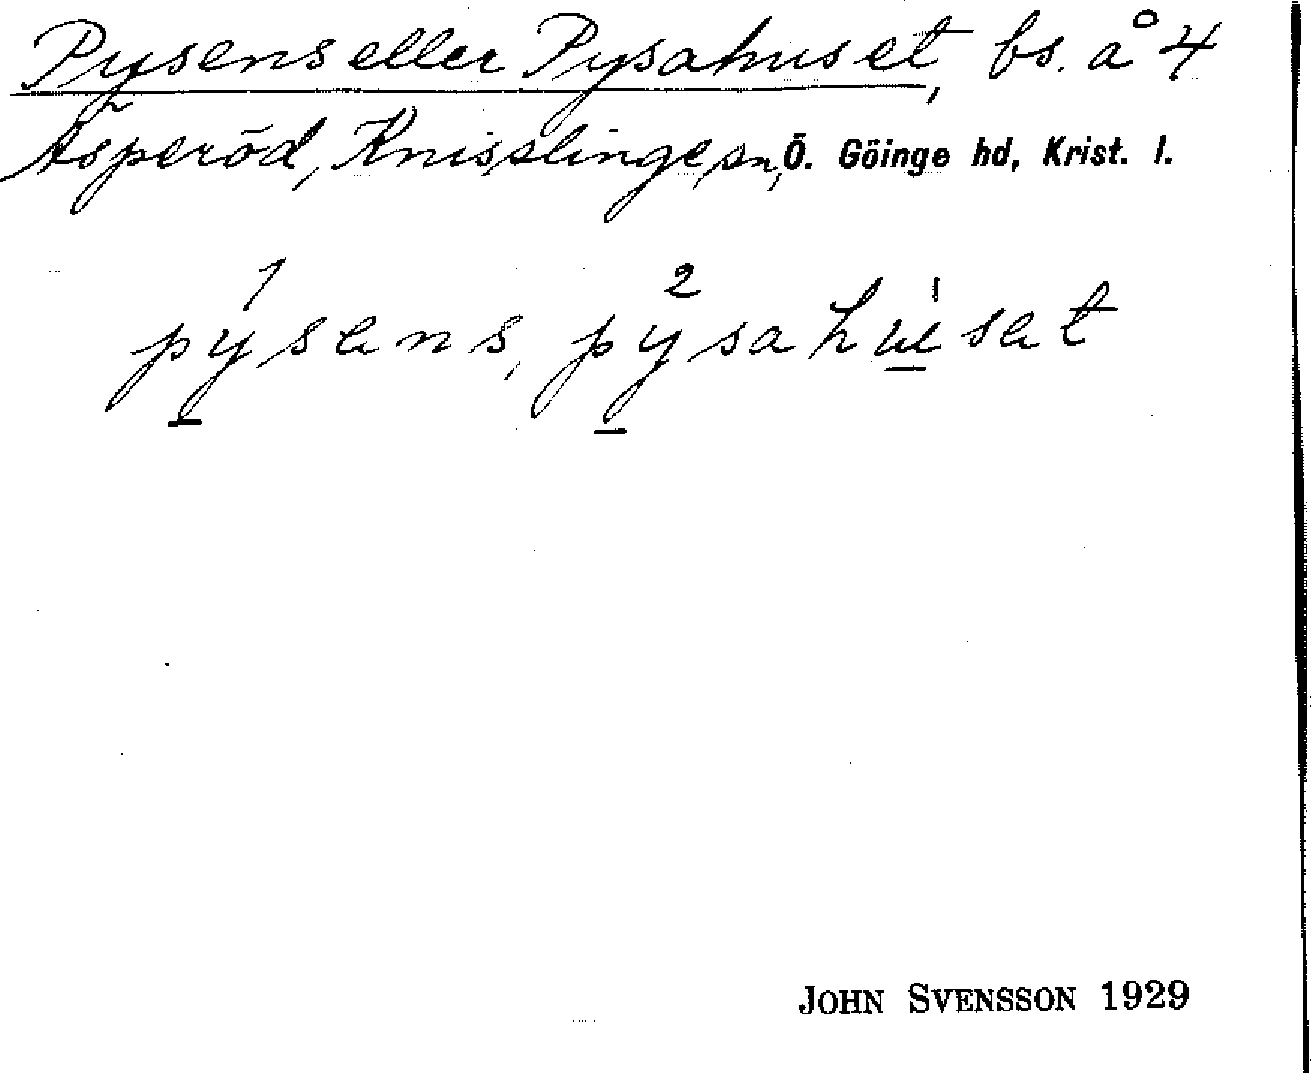 Pysens eller Pysahuset, bs. å 4
Asperöd, Knisslinge sn, Ö. Göinge hd, Krist. l.
1 2 ˈ
pysens, pysahuset
JOHN SVENSSON 1929